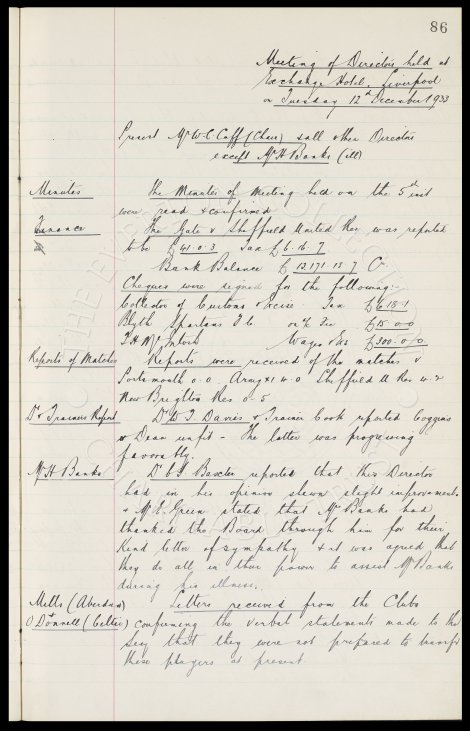 86
Meeting of Directors held at
Exchange Hotel, Liverpool
on Tuesday 12th December 1933
Present Mr W.C. Cuff (Chair) & all other Directors
except Mr H Banks (ill)
Minutes The Minutes of Meeting held on the 5th inst
were read & confirmed
Finance The Gate v Sheffield United Res was reported
to be £41.0.3 Tax £6.16.7
Bank Balance £12,171.13.7 Cr
Cheques were signed for the following:-
Collector of Customs & Excise Tax £6.18.1
Blyth Spartans F.C. Fee £15.0.0
T.H. McIntosh Wages & Exs £300.0.0
Reports of Matches Reports were received of the matches v
Portsmouth 0-0 Sheffield U Res
New Brighton Res 0-5
Dr & Trainers Report Dr W.T. Davies & Trainer Cook reported Coggins
& Dean unfit - The latter was progressing
favorably.
Mr H Banks Dr C.S. Baxter reported that this Director
had in his opinion shewn slight improvements
& Mr Green stated that Mr Banks had
thanked the Board through him for their
kind letter of sympathy & it was agreed that
they do all in their power to assist Mr Banks
during his illness.
Mills (Aberdeen) Letters received from the Clubs
O'Donnell (Celtic) confirming the verbal statements made to the
Secy that they were not prepared to transfer
these players at present.